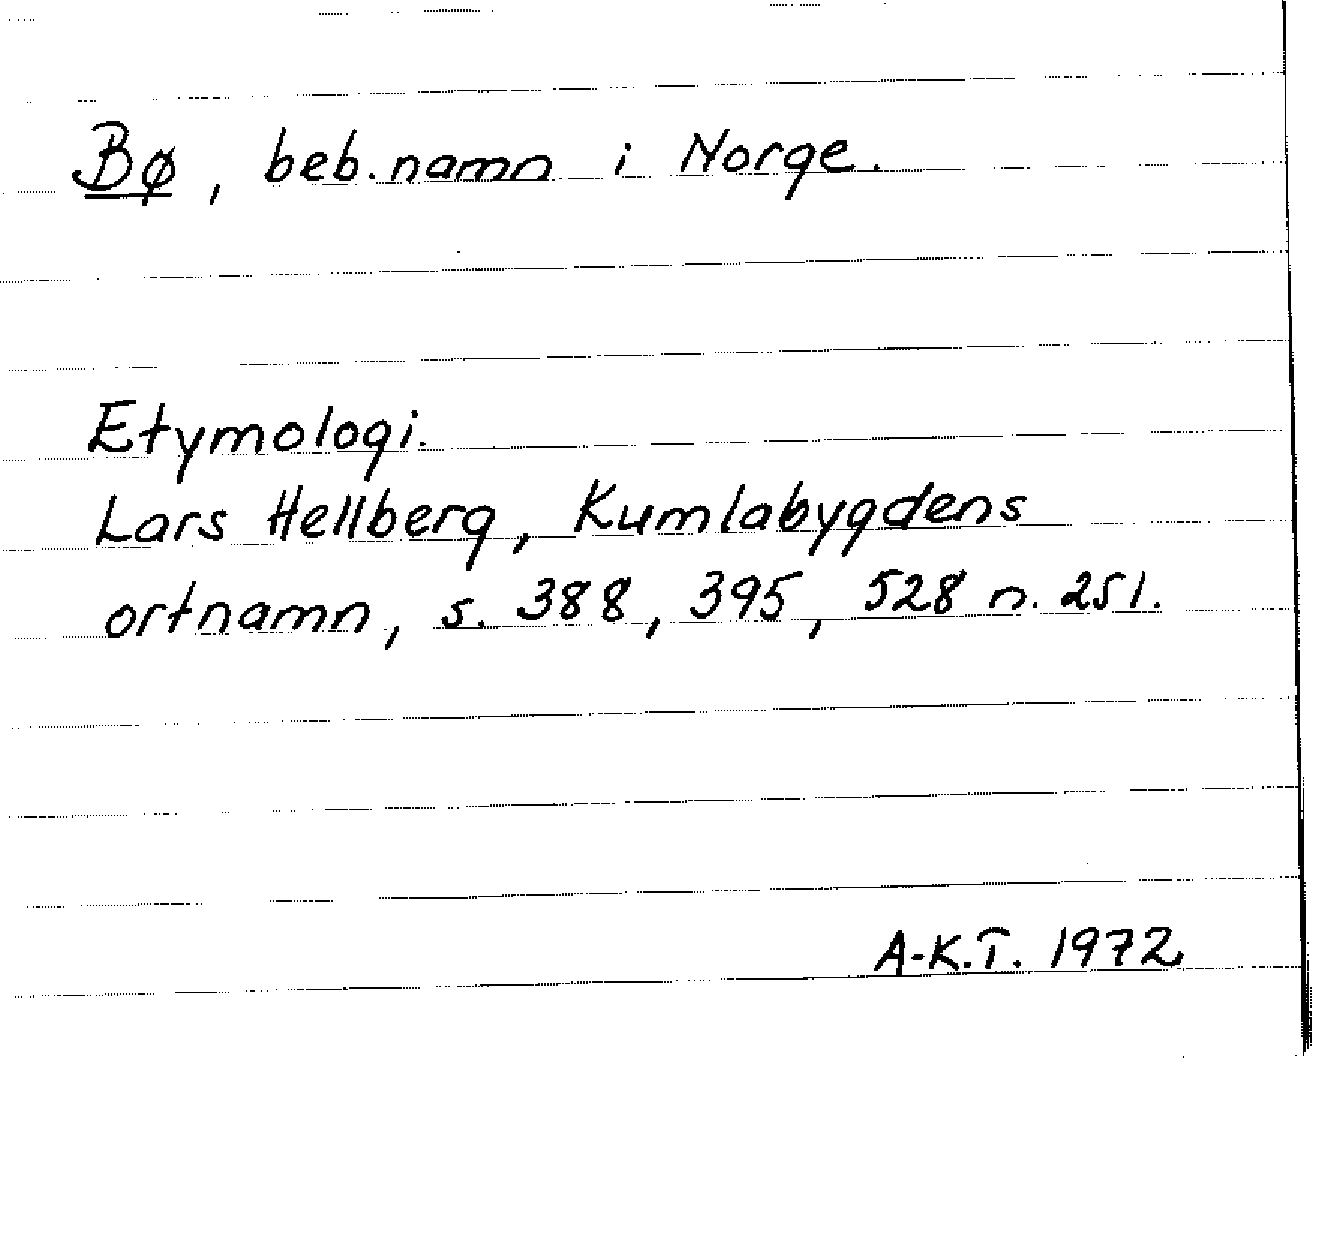 Bø, beb.namn i Norge.
Etymologi.
Lars Hellberg, Kumlabygdens
ortnamn, s. 388, 395, 528 n. 251.
A-K.T. 1972